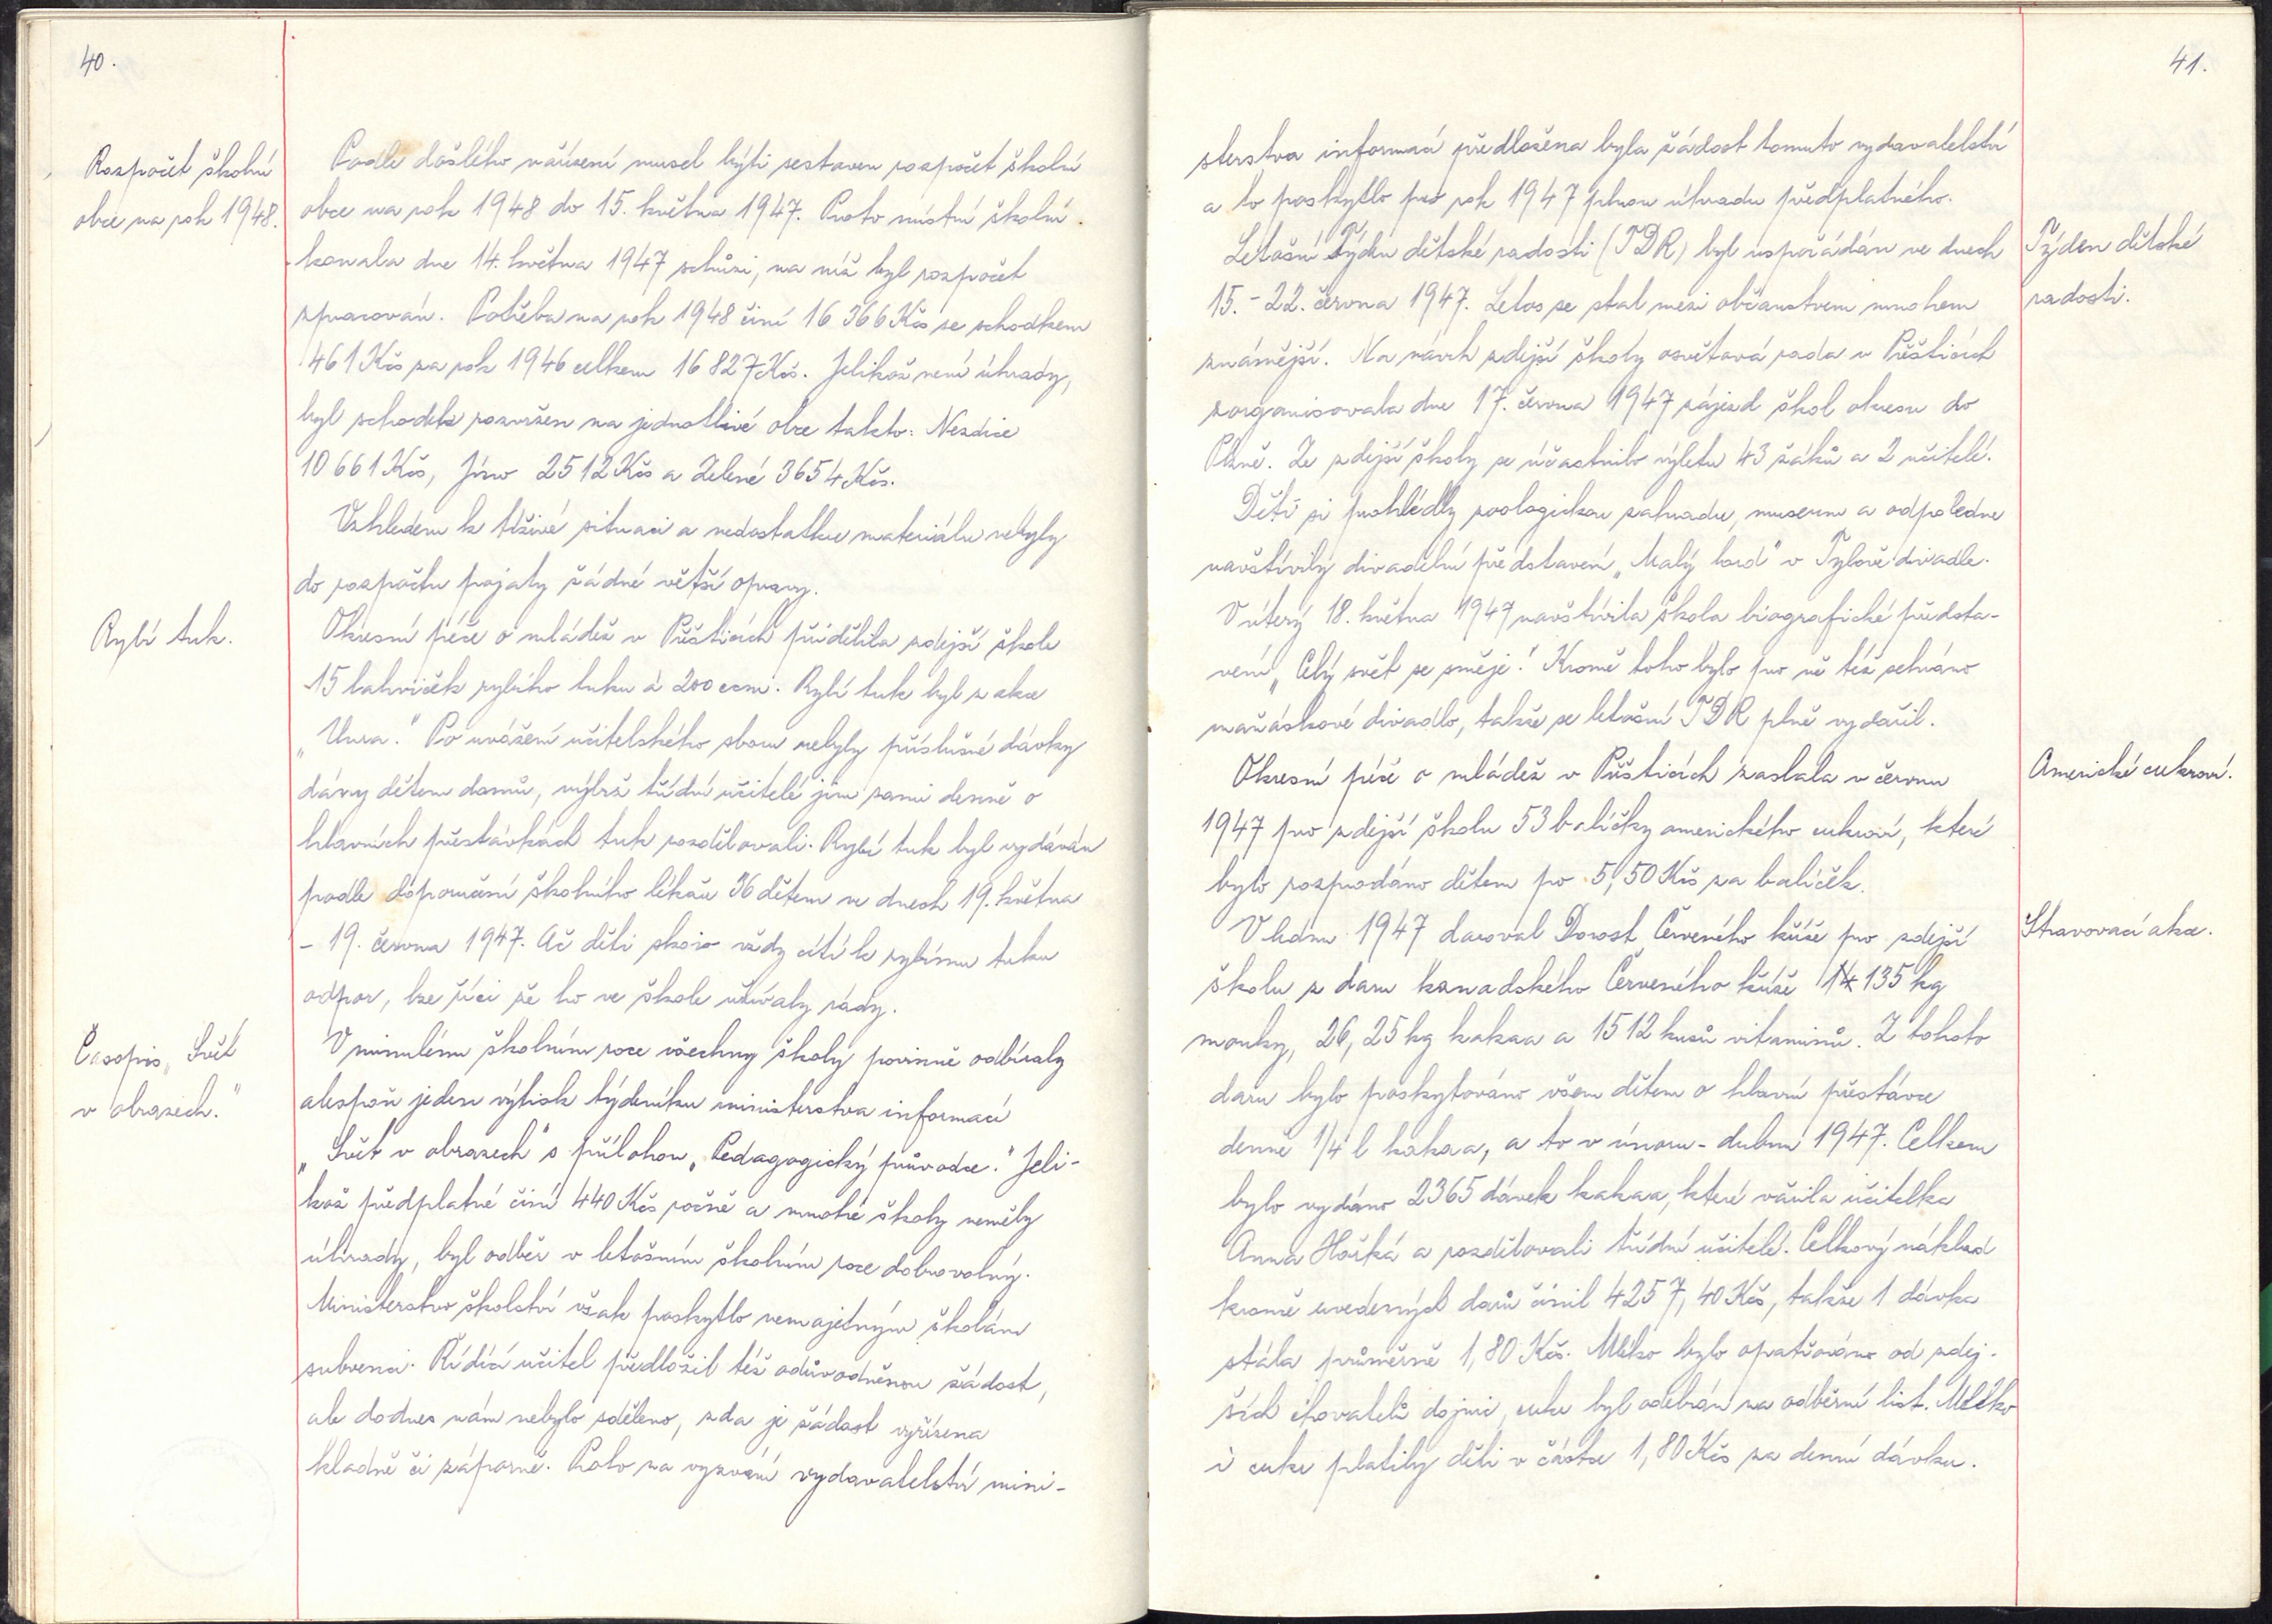 40.
Rozpočet školní
obce na rok 1948.
Podle došlého nařízení musel býti sestaven rozpočet školní
obce na rok 1948 do 15. května 1947. Proto místní školní
konala dne 14. května 1947 schůzi, na níž byl rozpočet
zpracován. Potřeba na rok 1948 činí 16 366 Kčs se schodkem
461 Kčs za rok 1946 celkem 16 827 Kčs. Jelikož není úhrady,
byl schodek rozvržen na jednotlivé obce takto: Nezdice
10 661 Kčs, Jíno 2512 Kčs a Zelené 3654 Kčs.
Vzhledem k tíživé situaci a nedostatku materiálu nebyly
do rozpočtu pojaty žádné větší opravy.
Rybí tuk.
Okresní péče o mládež v Přešticích přidělila zdejší škole
15 lahviček rybího tuku à 200 ccm. Rybí tuk byl z akce
„Unra." Po uvážení učitelského sboru nebyly příslušné dávky
dány dětem domů, nýbrž třídní učitelé jim sami denně o
hlavních přestávkách tuk rozdělovali. Rybí tuk byl vydáván
podle doporučení školního lékaře 36 dětem ve dnech 19. května
- 19. června 1947. Ač děti skoro vždy cítí k rybímu tuku
odpor, lze říci že ho ve škole užívaly rády.
Časopis „Svět
v obrazech."
V minulém školním roce všechny školy povinně odbíraly
alespoň jeden výtisk týdeníku ministerstva informací
„Svět v obrazech" s přílohou „Pedagogický průvodce." Jeli-
kož předplatné činí 440 Kčs ročně a mnohé školy neměly
úhrady, byl odběr v letošním školním roce dobrovolný.
Ministerstvo školství však poskytlo nemajetným školám
subvenci. Řídící učitel předložil též odůvodněnou žádost,
ale dodnes nám nebylo sděleno, zda je žádost vyřízena
kladně či záporně. Proto na vyzvání vydavatelství mini-
41.
sterstva informací předložena byla žádost tomuto vydavatelství
a to poskytlo pro rok 1947 plnou úhradu předplatného.
Týden dětské
radosti.
Letošní Týden dětské radosti (TDR) byl uspořádán ve dnech
15. - 22. června 1947. Letos se stal mezi občanstvem mnohem
známější. Na návrh zdejší školy osvětová rada v Přešticích
zorganisovala dne 17. června 1947 zájezd škol okresu do
Plzně. Ze zdejší školy se účastnilo výletu 43 žáků a 2 učitelé.
Děti si prohlédly zoologickou zahradu, museum a odpoledne
navštívily divadelní představení „Malý lord" v Tylově divadle.
V úterý 18. května 1947 navštívila škola biografické předsta-
vení „Celý svět se směje." Kromě toho bylo pro ně též sehráno
maňáskové divadlo, takže se letošní TDR plně vydařil.
Americké cukroví.
Okresní péče o mládež v Přešticích zaslala v červnu
1947 pro zdejší školu 53 balíčky amerického cukroví, které
bylo rozprodáno dětem po 5,50 Kčs za balíček.
Stravovací akce.
V lednu 1947 daroval Dorost Červeného kříže pro zdejší
školu z daru kanadského Červeného kříže 135 kg
mouky, 26,25 kg kakaa a 1512 kusů vitaminů. Z tohoto
daru bylo poskytováno všem dětem o hlavní přestávce
denně 1/4 l kakaa, a to v únoru - dubnu 1947. Celkem
bylo vydáno 2365 dávek kakaa, které vařila učitelka
Anna Horká a rozdělovali třídní učitelé. Celkový náklad
kromě uvedených darů činil 4257,40 Kčs, takže 1 dávka
stála průměrně 1,80 Kčs. Mléko bylo opatřováno od zdej-
ších chovatelů dojnic, cukr byl odebrán na odběrní list. Mléko
i cukr platily děti v částce 1,80 Kčs za denní dávku.